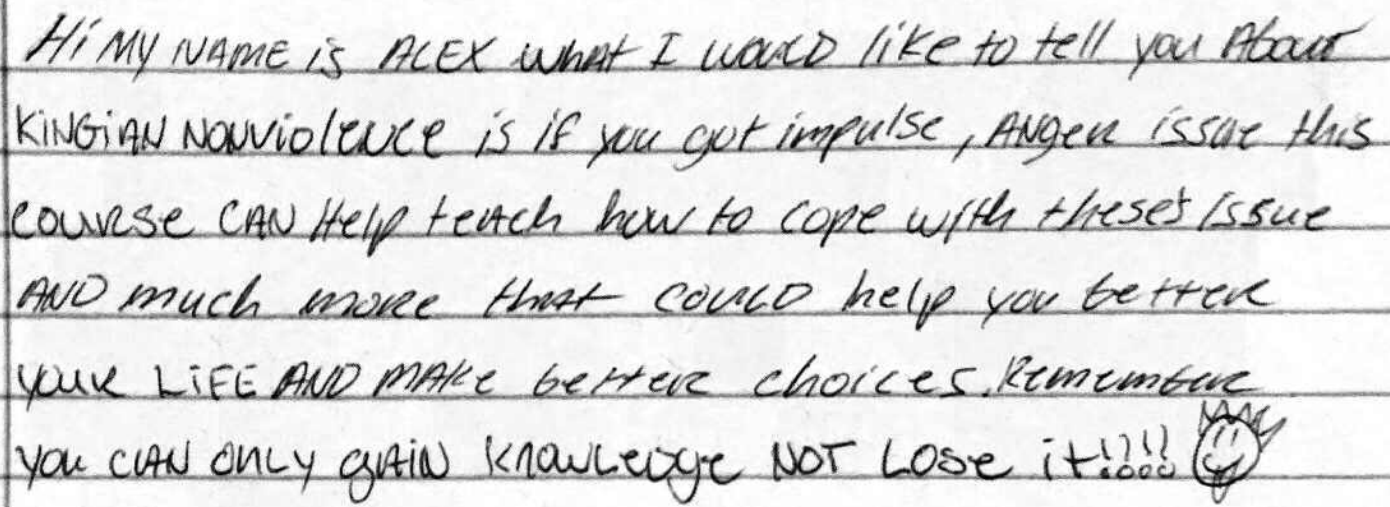 Hi MY NAME is ALEX what I WOULD like to tell you About
KINGiAN NONViolence is if you got impulse, ANger issue this
course CAN Help teach how to cope with these's issue
AND much more that COULD help you better
your LiFE AND MAKe better choices. Remember
you CAN ONLY gAiN KNowLedge NOT Lose it!!!!